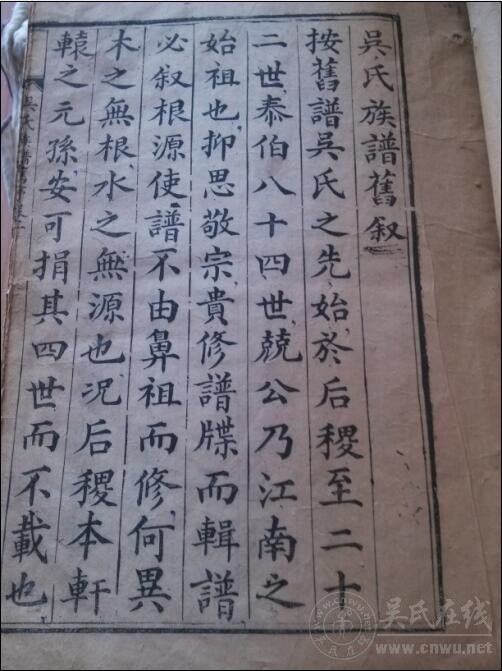 吳氏族譜舊叙
按舊譜吳氏之先始於后稷至二十
二世泰伯八十四世兢公乃江南之
始祖也抑思敬宗貴修譜牒而輯譜
必叙根源使譜不由鼻祖而修何異
木之無根水之無源也况后稷本軒
轅之元孫安可捐其四世而不載也
吳氏族譜
吴氏在线
www.cnwu.net